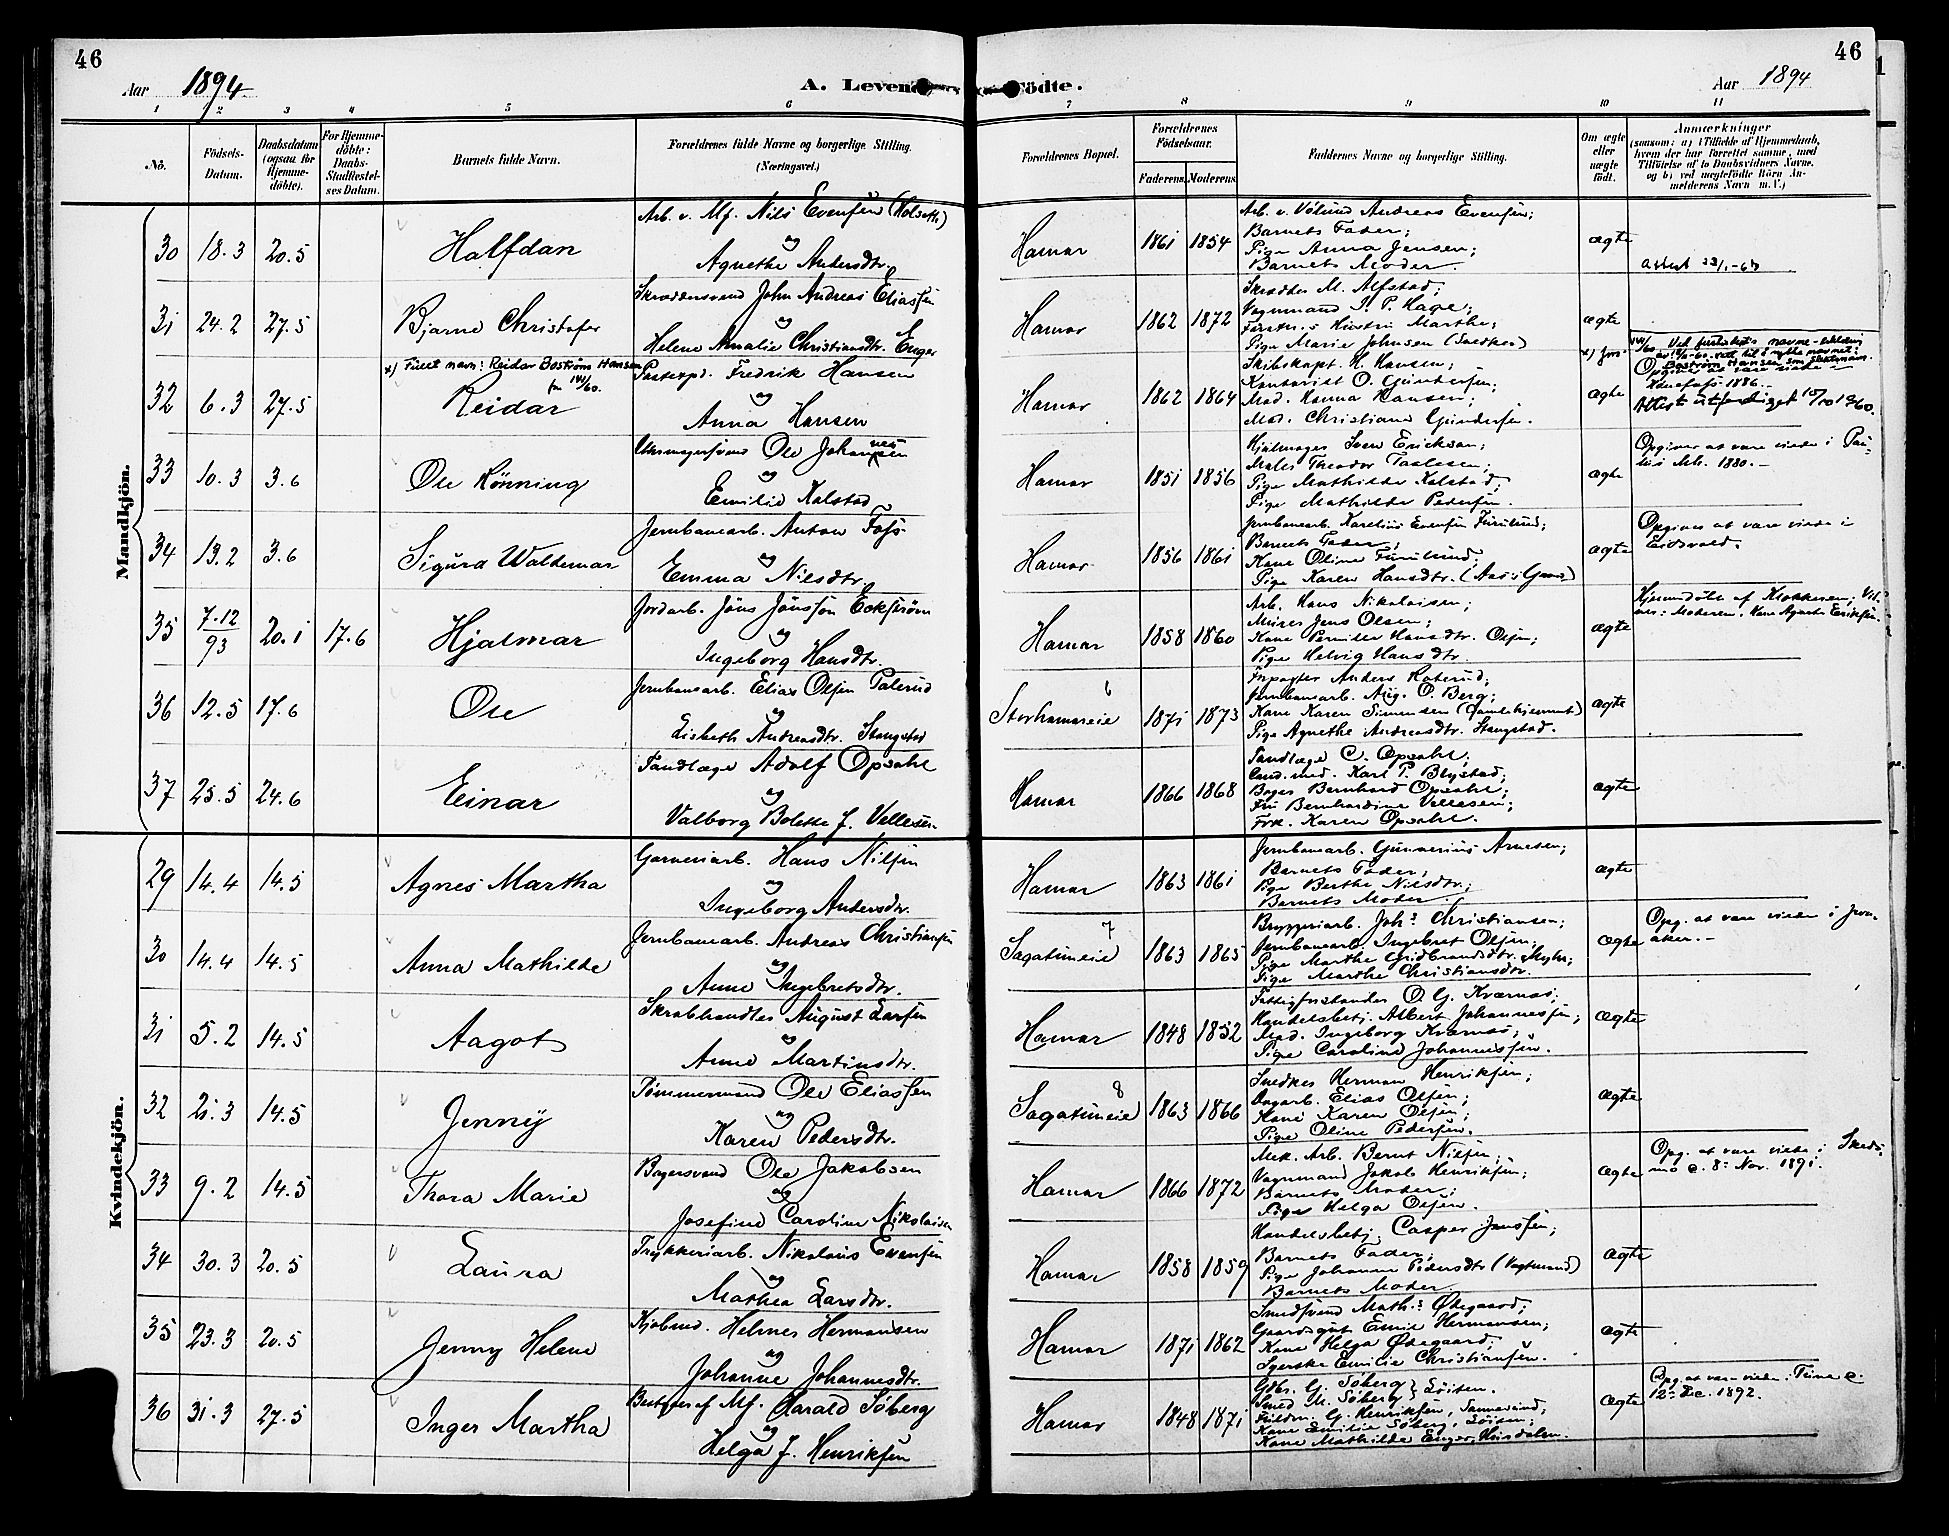 46
Aar 1894.
A. Levende Födte.
46
Aar 1894
1 2 3 4 5 6 7 8 9 10 11
No.
Födsels-Datum.
Daabsdatum (ogsaa for Hjemme-döbte).
For Hjemme-döbte: Daabs-Stadfæstel-ses Datum.
Barnets fulde Navn.
Forældrenes fulde Navne og borgerlige Stilling.
(Næringsvei.)
Forældrenes Bopæl.
Forældrenes Födselsaar.
Faderens. Moderens.
Faddernes Navne og borgerlige Stilling.
Om ægte eller uægte födt.
Anmærkninger
(saasom: a) i Tilfælde af Hjemmedaab,
hvem der har forrettet samme, med
Tilföielse af to Daabsvidners Navne,
og b) ved uægtefödte Börn An-
melderens Navn m. V.)
Mandkjön.
30 18.3 20.5 Halfdan
Arb. v. Mf. Nils Evensen (Holseth)
og
Agnethe Andersdtr.
Hamar 1861 1854
Arb. v. Völund Andreas Evensen;
Barnets Fader;
Pige Anna Jensen;
Barnets Moder.
ægte
31 24.2 27.5 Bjarne Christofer
Skræddersvend John Andreas Eliassen
og
Helene Amalie Christiansdtr. Enger
Hamar 1862 1872
Skrædder M. Alfstad;
Vognmand J. P. Hage;
Pige Marie Johnsen
ægte
x) Füert navn: Reidar Boström Hansen
32 6.3 27.5 Reidar
Postexpd. Fredrik Hansen
og
Anna Hansen
Hamar 1862 1864
Skibskapt. H. Hansen;
Kontorist O. Gundersen;
Mad. Hanna Hansen;
Mad. Christiane Gundersen.
ægte
Attest utferdiget 15/10 1960.
33 10.3 3.6 Ole Rönning
Uhrmagersvend Ole Johannesen
og
Emilie Kalstad
Hamar 1851 1856
Hjulmager Sven Erickson;
Maler Theodor Taalesen;
Pige Mathilde Kalstad;
Pige Mathilde Pedersen.
ægte
Opgiver at være viede i Pau-
lus Mh. 1880.-
34 13.2 3.6 Sigurd Waldemar
Jernbanearb. Anton Foss
og
Emma Nilsdtr.
Hamar 1856 1861
Jernbanearb. Karelius Evensen Furulund;
Barnets Fader;
Kone Oline Furulund;
Pige Karen Hansdtr.
ægte
Opgiver at være viede i
Eidsvold.
35 7.12/93 20.1 17.6 Hjalmar
Jordarb. Jöns Jönsson Eckström
og
Ingeborg Hansdtr.
Hamar 1858 1860
Arb. Hans Nikolaisen;
Murer Jens Olsen;
Kone Pernille Hansdtr. Olsen;
Pige Helvig Hansdtr.
ægte
Hjemmedöbt af Klokkeren; Vid-
ner: Moderen, Kone Agathe Eriksen.
36 12.5 17.6 Ole
Jernbanearb. Elias Olsen Palerud
og
Lisbeth Andreasdtr. Stangstad
Storhamareie 6 1871 1873
Anders Roterud;
Jernbanearb. Aug. O. Berg;
Kone Karen Simensen (Gamlehjemmet)
Pige Agnethe Andreasdtr. Stangstad.
ægte
37 25.5 24.6 Einar
Tandlæge Adolf Opsahl
og
Valborg Bolette J. Vellesen
Hamar 1866 1868
Tandlæge C. Opsahl;
Cand. med. Karl P. Blystad;
Bager Bernhard Opsahl;
Fru Bernhardine Vellesen;
Frk. Karen Opsahl.
ægte
Kvindekjön.
29 14.4 14.5 Agnes Martha
Garveriarb. Hans Nilsen
og
Ingeborg Andersdtr.
Hamar 1863 1861
Jernbanearb. Gunnerius Arnesen;
Barnets Fader;
Pige Berthe Nilsdtr.;
Barnets Moder.
ægte
30 14.4 14.5 Anna Mathilde
Jernbanearb. Andreas Christiansen
og
Anne Ingebretsdtr.
Sagatuneie 7 1863 1865
Bryggeriarb. Johs Christiansen;
Jernbanearb. Ingebret Olsen;
Pige Marthe Gulbrandsdtr. Myhr;
Pige Marthe Christiansdtr.
ægte
Opg. at være viede i
aker.-
31 5.2 14.5 Aagot
Skrabhandler August Larsen
og
Anne Martinsdtr.
Hamar 1848 1852
Fattigforstander O. G. Kværnæs;
Handelsbetj. Albert Johannessen;
Mad. Ingeborg Kværnæs;
Pige Caroline Johannessen.
ægte
32 21.3 14.5 Jenny
Tömmermand Ole Eliassen
og
Karen Pedersdtr.
Sagatuneie 8 1863 1866
Snedker Herman Henriksen;
Elias Olsen;
Kone Karen Olsen;
Pige Oline Pedersen.
ægte
33 9.2 14.5 Thora Marie
Bagersvend Ole Jakobsen
og
Josefine Caroline Nikolaisen
Hamar 1866 1872
Mek. Arb. Bernt Nilsen;
Vognmand Jakob Henriksen;
Barnets Moder;
Pige Helga Olsen.
ægte
Opg. at være viede i Skeds-
mo C. 8. Nov. 1891.
34 30.3 20.5 Laura
Trykkeriarb. Nikolaus Evensen
og
Mathea Larsdtr.
Hamar 1858 1859
Handelsbetj. Casper Janssen;
Barnets Fader;
Pige Johanne Pedersdtr
Barnets Moder
ægte
35 23.3 20.5 Jenny Helene
Kjöbmd. Helmer Hermansen
og
Johanne Johannesdtr.
Hamar 1871 1862
Smedsvend Maths Ödegaard;
Gaardsgut Emil Hermansen;
Kone Helga Ödegaard;
Syerske Emilie Christiansen.
ægte
36 31.3 27.5 Inger Martha
Bestyrer af Mf. Harald Söberg
og
Helga J. Henriksen
Hamar 1848 1871
Gdbr. G. Söberg } Löiten.
Smed M. Söberg
G. Henriksen,
Kone Emilie Söberg, Löiten;
Kone Mathilde Enger,
ægte
Opg. at være viede i Fune C.
12. De. 1892.